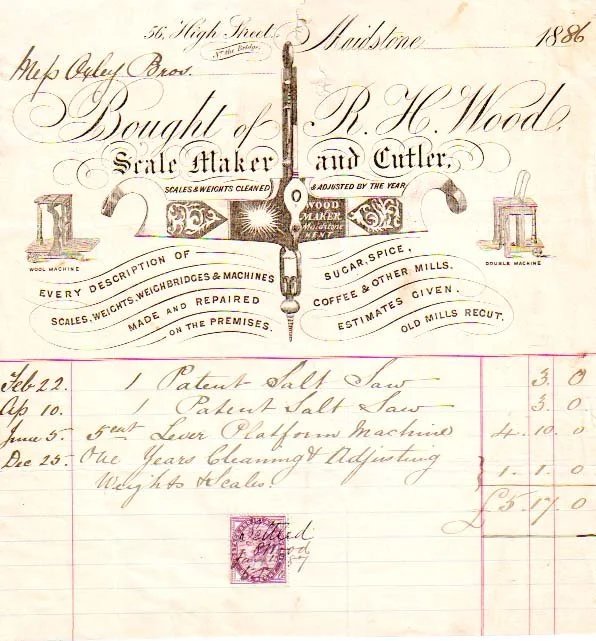 56, High Street, Maidstone 1886
Nr. the Bridge.
Mess Oxley Bros.
Bought of R. H. Wood.
Scale Maker and Cutler,
SCALES & WEIGHTS CLEANED & ADJUSTED BY THE YEAR
WOOD
MAKER
Maidstone
KENT
WOOL MACHINE
DOUBLE MACHINE
EVERY DESCRIPTION OF
SCALES, WEIGHTS, WEIGHBRIDGES & MACHINES
MADE AND REPAIRED
ON THE PREMISES.
SUGAR, SPICE,
COFFEE & OTHER MILLS.
ESTIMATES GIVEN.
OLD MILLS RECUT.
Feb 22. 1 Patent Salt Saw 3. 0
Ap 10. 1 Patent Salt Saw 3. 0
June 5. 5cwt Lever Platform Machine 4. 10. 0
Dec 25. One Years Cleaning & Adjusting
Weights & Scales. 1. 1. 0
£5. 17. 0
Settled
RHWood